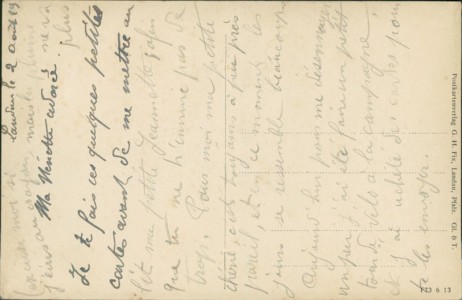 Landau le 2 août 19
Ma Ninette adorée
Je te fais ces quelques petites
cartes avant de me mettre au
lit ma petite Jeannette, afin
que tu ne t'ennuie pas de
trop. Pour moi ma petite
chérie c'est toujours à peu près
pareil, et en ce moment les
jours se ressemble beaucoup
Aujourd'hui pour me désennuyer
un peu j'ai été faire un petit
tour de vélo à la campagne
et j'ai acheté des cartes pour
te les envoyer.
excuse moi si
plus
Postkartenverlag G. H. Fix, Landau, Pfalz. Gl. & T.
6 13